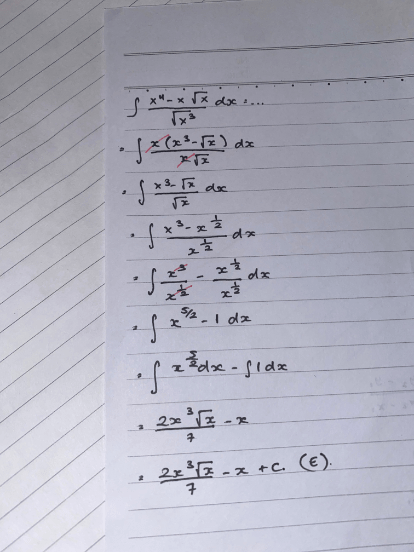 ∫ (x⁴ - x √x)/√x³ dx = ...
= ∫ x(x³ - √x)/x√x dx
= ∫ (x³ - √x)/√x dx
= ∫ (x³ - x^(1/2))/x^(1/2) dx
= ∫ x³/x^(1/2) - x^(1/2)/x^(1/2) dx
= ∫ x^(5/2) - 1 dx
= ∫ x^(5/2) dx - ∫ 1 dx
= 2x³√x/7 - x
= 2x³√x/7 - x + C. (E).